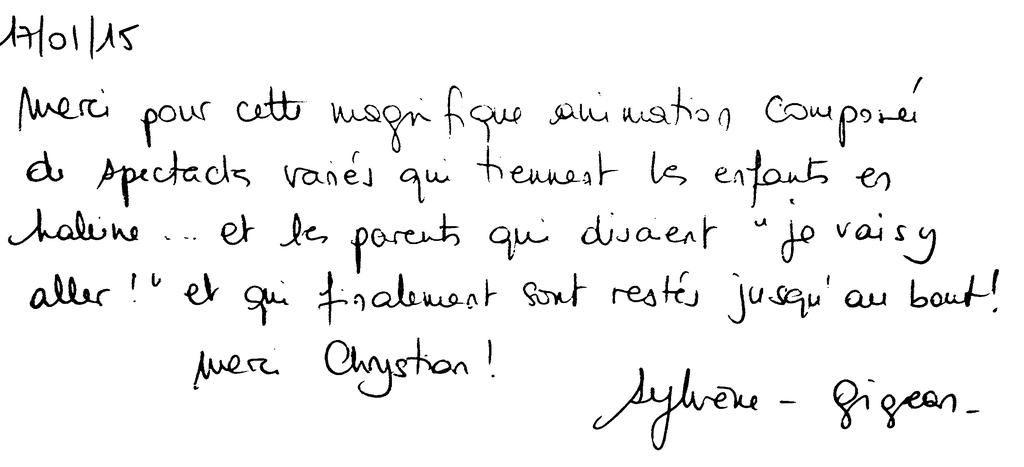 17/01/15
Merci pour cette magnifique animation composée
de spectacles variés qui tiennent les enfants en
haleine ... et les parents qui disaient "je vais y
aller !" et qui finalement sont restés jusqu'au bout !
Merci Chrystian !
Sylvène - Gigean -